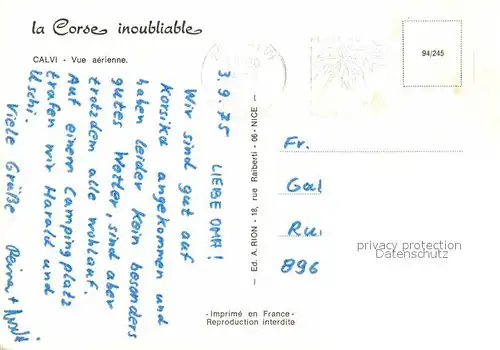 la Corse inoubliable
CALVI - Vue aérienne.
94/245
3.9.75
LIEBE OMA!
Wir sind gut auf
Korsika angekommen und
haben leider kein besonders
gutes Wetter, sind aber
trotzdem alle wohlauf.
Auf einem Campingplatz
trafen wir Harald und
Uschi.
Viele Grüße
- Ed. A. RION - 18, rue Raiberti - 06 - NICE -
Fr.
Gal
Rui
896
privacy protection
Datenschutz
- Imprimé en France -
Reproduction interdite